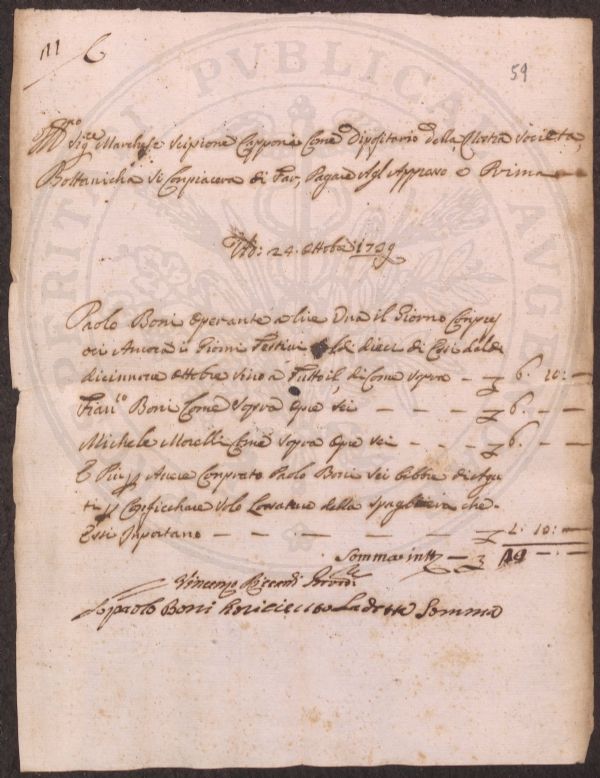 59
Ill.mo Sig.re Marchese Scipione Capponi Come Dipositario della Nostra Società
Bottanicha Si Conpiacera di Far, Pagare Agl Appreso e Prima
24 Ottobre 1739
Paolo Boni Operante a lire Una il Giorno Conpre
soci Ancora i Giorni Festivi Soldi dieci di Così dal dì
dicinnove Ottobre sino a Tutto il, di Come Sopra 6. 10:
Fran.co Boni Come Sopra Opre Sei 6.
Michele Morelli Come Sopra Opre Sei 6.
E Più Avere Conprato Paolo Boni Sei libbre di Agu
ti Conficchare Solo della Spagliera che
Essi Inportano L: 10:
Somma in tt.o 19
Vincenzo
Io paolo Boni Ho riceuto La detta Somma